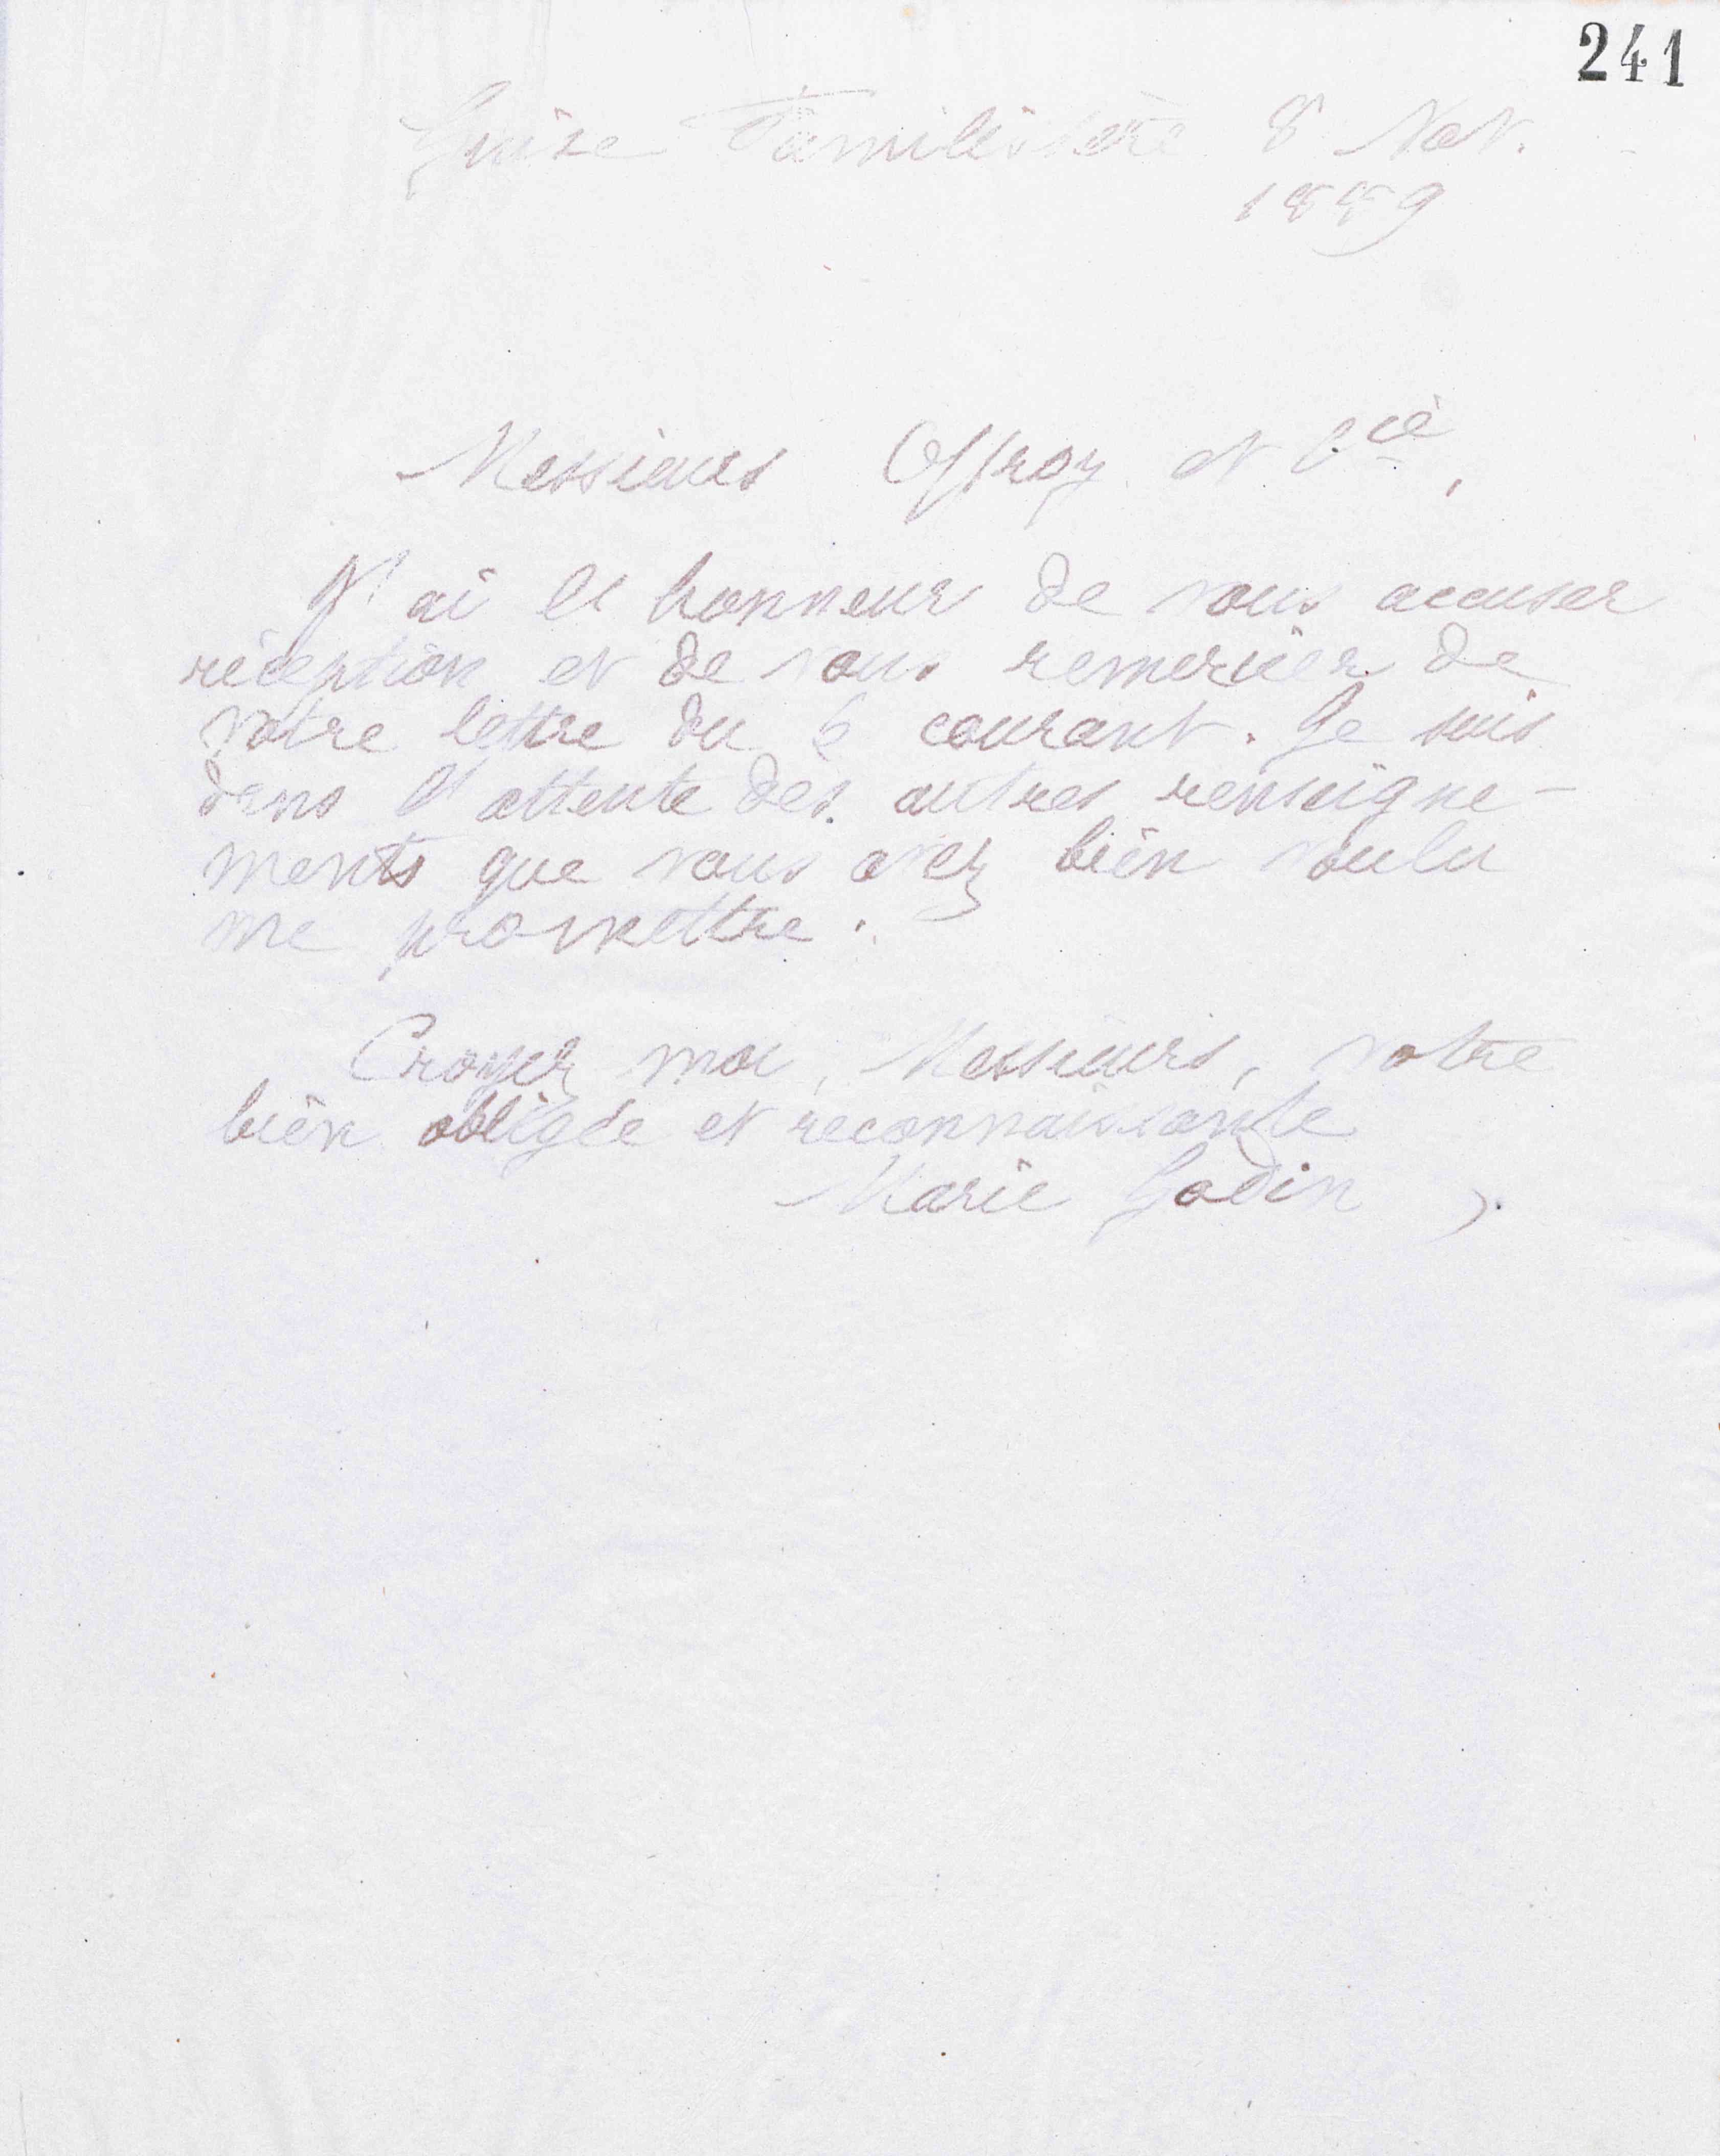 241
Guise Familistère 8 Nov.
1889
Messieurs Offroy et Cie,
J'ai l'honneur de vous accuser
réception et de vous remercier de
votre lettre du 6 courant. Je suis
dans l'attente des autres renseigne-
ments que vous avez bien voulu
me promettre.
Croyez moi, Messieurs, votre
bien obligée et reconnaissante
Marie Godin